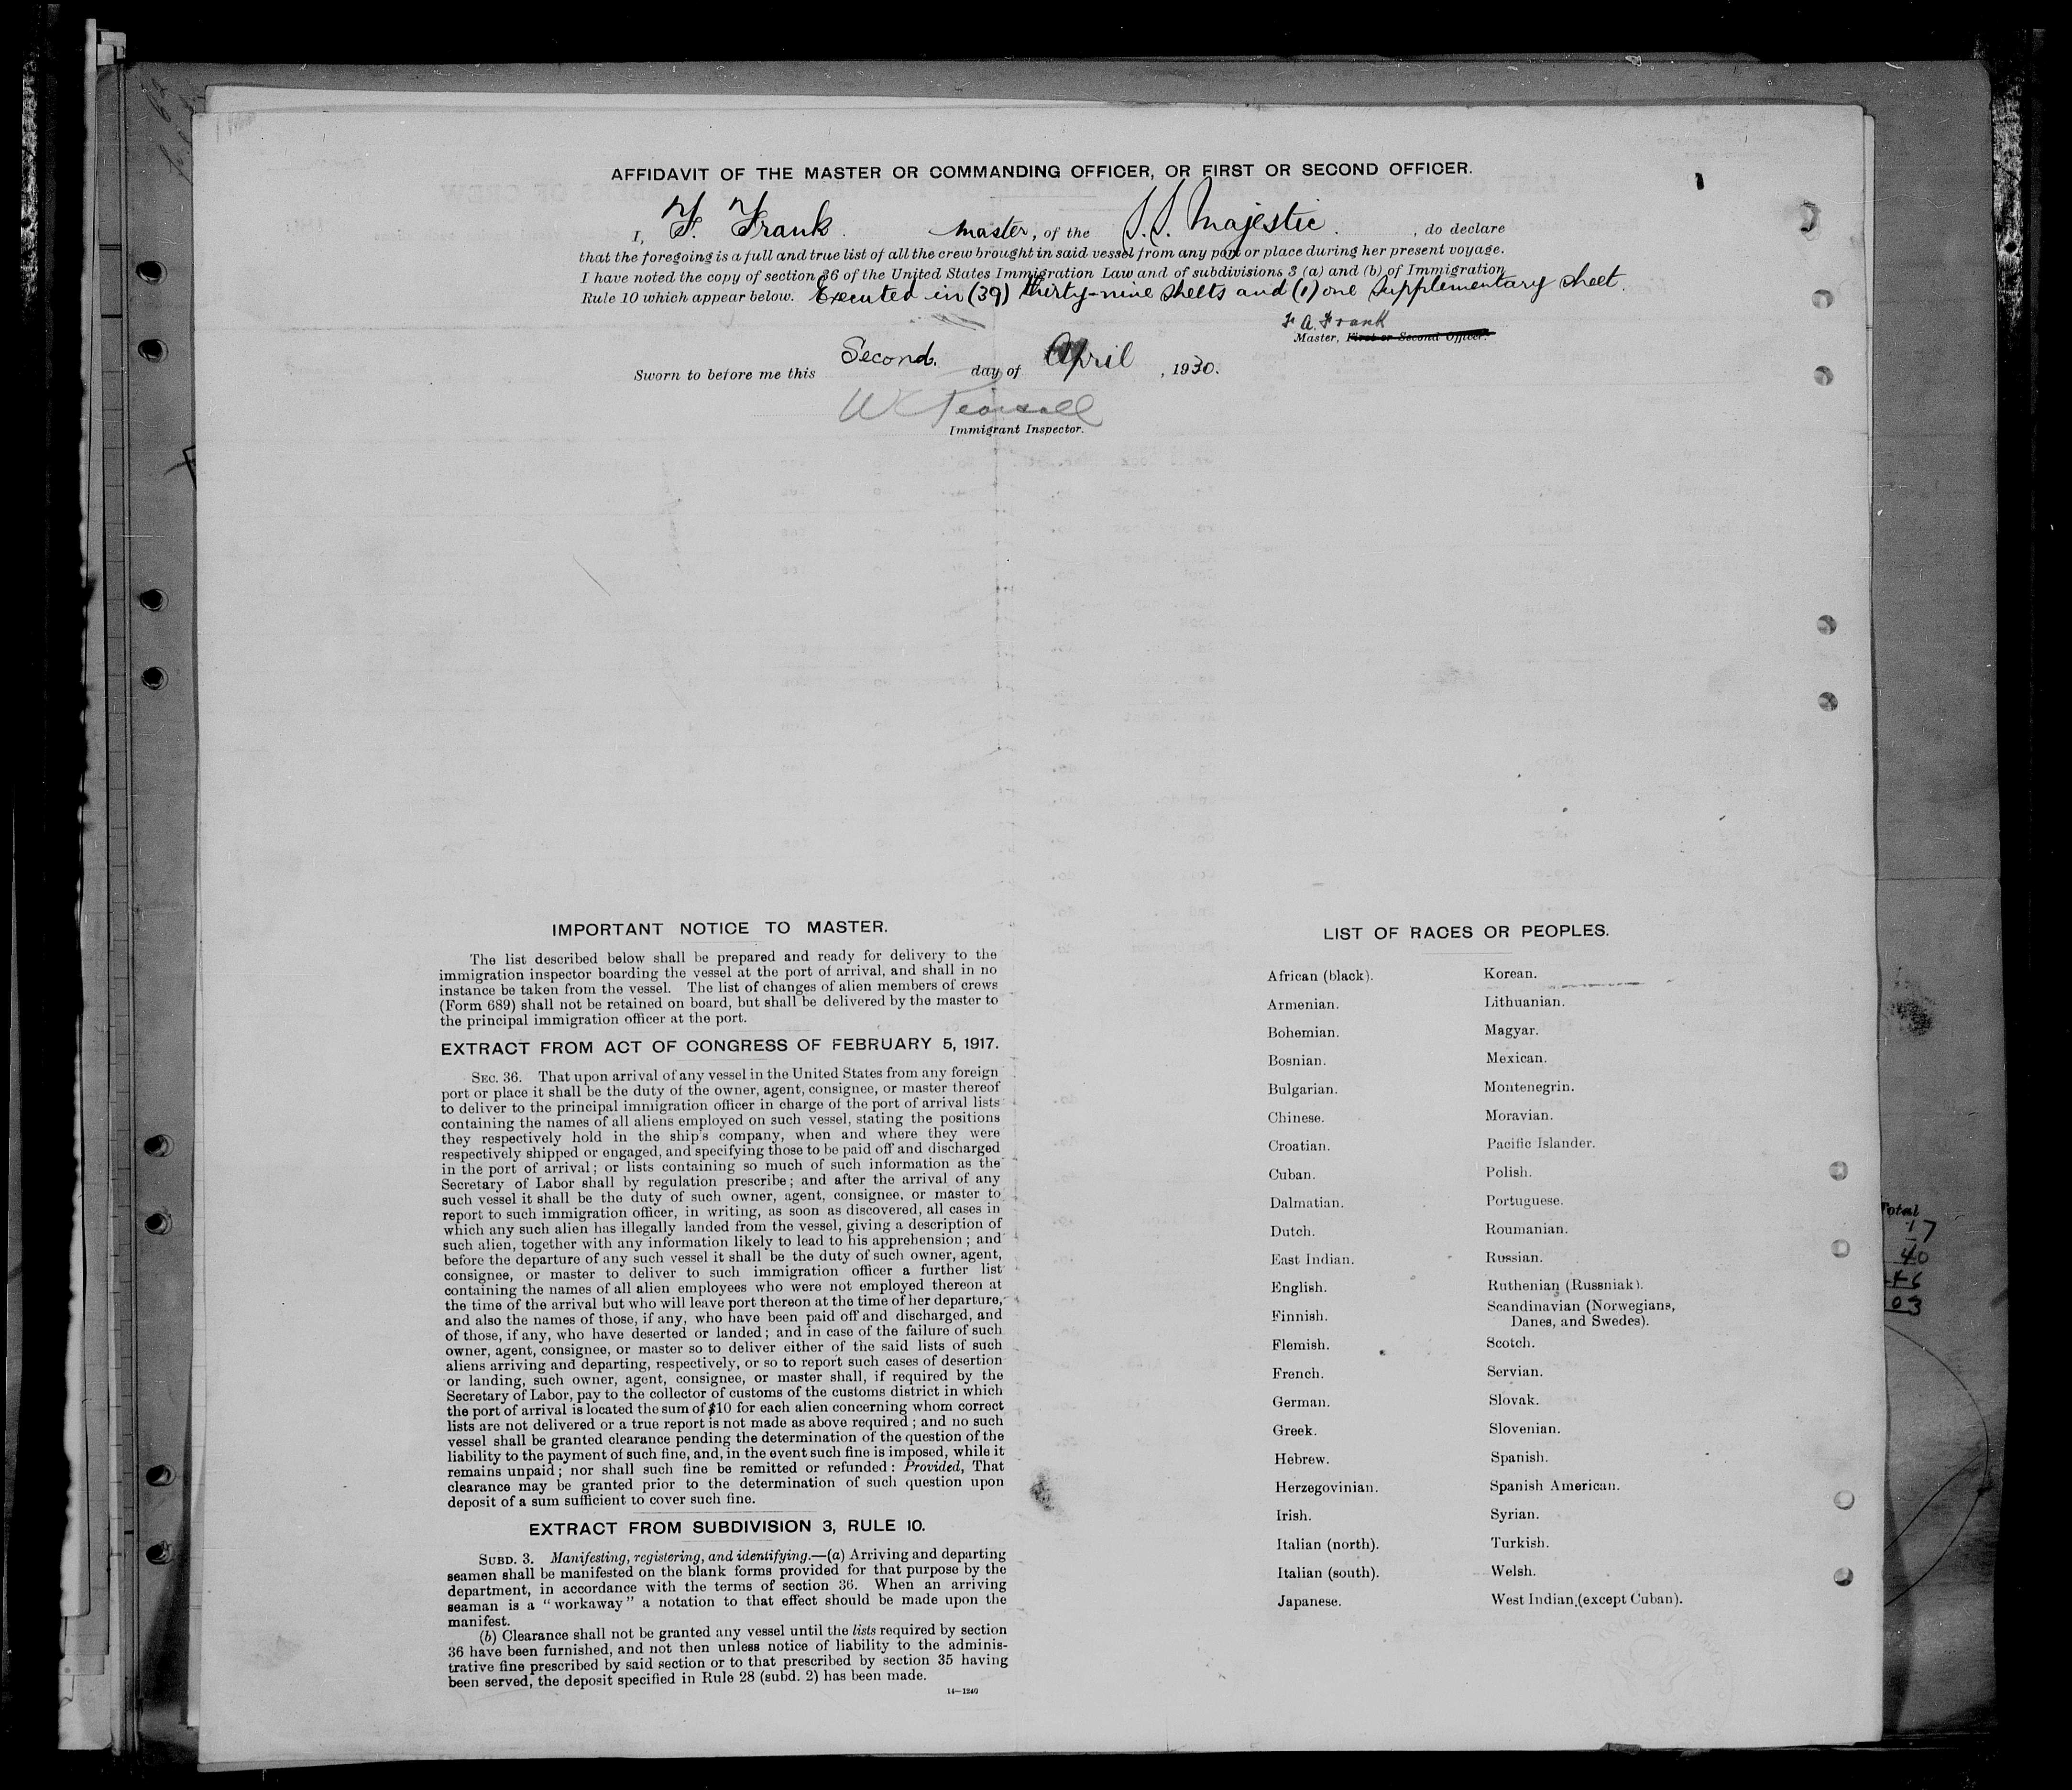 AFFIDAVIT OF THE MASTER OR COMMANDING OFFICER, OR FIRST OR SECOND OFFICER.
I, F. Frank. Master, of the S.S. Majestic. , do declare
that the foregoing is a full and true list of all the crew brought in said vessel from any port or place during her present voyage.
I have noted the copy of section 36 of the United States Immigration Law and of subdivisions 3 (a) and (b) of Immigration
Rule 10 which appear below. Executed in (39) thirty-nine sheets and (1) one supplementary sheet.
F A. Frank
Master, First or Second Officer.
Sworn to before me this Second. day of April , 1930.
Immigrant Inspector.
IMPORTANT NOTICE TO MASTER.
The list described below shall be prepared and ready for delivery to the
immigration inspector boarding the vessel at the port of arrival, and shall in no
instance be taken from the vessel. The list of changes of alien members of crews
(Form 689) shall not be retained on board, but shall be delivered by the master to
the principal immigration officer at the port.
EXTRACT FROM ACT OF CONGRESS OF FEBRUARY 5, 1917.
SEC. 36. That upon arrival of any vessel in the United States from any foreign
port or place it shall be the duty of the owner, agent, consignee, or master thereof
to deliver to the principal immigration officer in charge of the port of arrival lists
containing the names of all aliens employed on such vessel, stating the positions
they respectively hold in the ship's company, when and where they were
respectively shipped or engaged, and specifying those to be paid off and discharged
in the port of arrival; or lists containing so much of such information as the
Secretary of Labor shall by regulation prescribe; and after the arrival of any
such vessel it shall be the duty of such owner, agent, consignee, or master to
report to such immigration officer, in writing, as soon as discovered, all cases in
which any such alien has illegally landed from the vessel, giving a description of
such alien, together with any information likely to lead to his apprehension; and
before the departure of any such vessel it shall be the duty of such owner, agent,
consignee, or master to deliver to such immigration officer a further list
containing the names of all alien employees who were not employed thereon at
the time of the arrival but who will leave port thereon at the time of her departure,
and also the names of those, if any, who have been paid off and discharged, and
of those, if any, who have deserted or landed; and in case of the failure of such
owner, agent, consignee, or master so to deliver either of the said lists of such
aliens arriving and departing, respectively, or so to report such cases of desertion
or landing, such owner, agent, consignee, or master shall, if required by the
Secretary of Labor, pay to the collector of customs of the customs district in which
the port of arrival is located the sum of $10 for each alien concerning whom correct
lists are not delivered or a true report is not made as above required; and no such
vessel shall be granted clearance pending the determination of the question of the
liability to the payment of such fine, and, in the event such fine is imposed, while it
remains unpaid; nor shall such fine be remitted or refunded: Provided, That
clearance may be granted prior to the determination of such question upon
deposit of a sum sufficient to cover such fine.
EXTRACT FROM SUBDIVISION 3, RULE 10.
SUBD. 3. Manifesting, registering, and identifying.—(a) Arriving and departing
seamen shall be manifested on the blank forms provided for that purpose by the
department, in accordance with the terms of section 36. When an arriving
seaman is a "workaway" a notation to that effect should be made upon the
manifest.
(b) Clearance shall not be granted any vessel until the lists required by section
36 have been furnished, and not then unless notice of liability to the adminis-
trative fine prescribed by said section or to that prescribed by section 35 having
been served, the deposit specified in Rule 28 (subd. 2) has been made.
14—1240
LIST OF RACES OR PEOPLES.
African (black).
Armenian.
Bohemian.
Bosnian.
Bulgarian.
Chinese.
Croatian.
Cuban.
Dalmatian.
Dutch.
East Indian.
English.
Finnish.
Flemish.
French.
German.
Greek.
Hebrew.
Herzegovinian.
Irish.
Italian (north).
Italian (south).
Japanese.
Korean.
Lithuanian.
Magyar.
Mexican.
Montenegrin.
Moravian.
Pacific Islander.
Polish.
Portuguese.
Roumanian.
Russian.
Ruthenian (Russniak).
Scandinavian (Norwegians,
Danes, and Swedes).
Scotch.
Servian.
Slovak.
Slovenian.
Spanish.
Spanish American.
Syrian.
Turkish.
Welsh.
West Indian (except Cuban).
Total
17
40
46
03